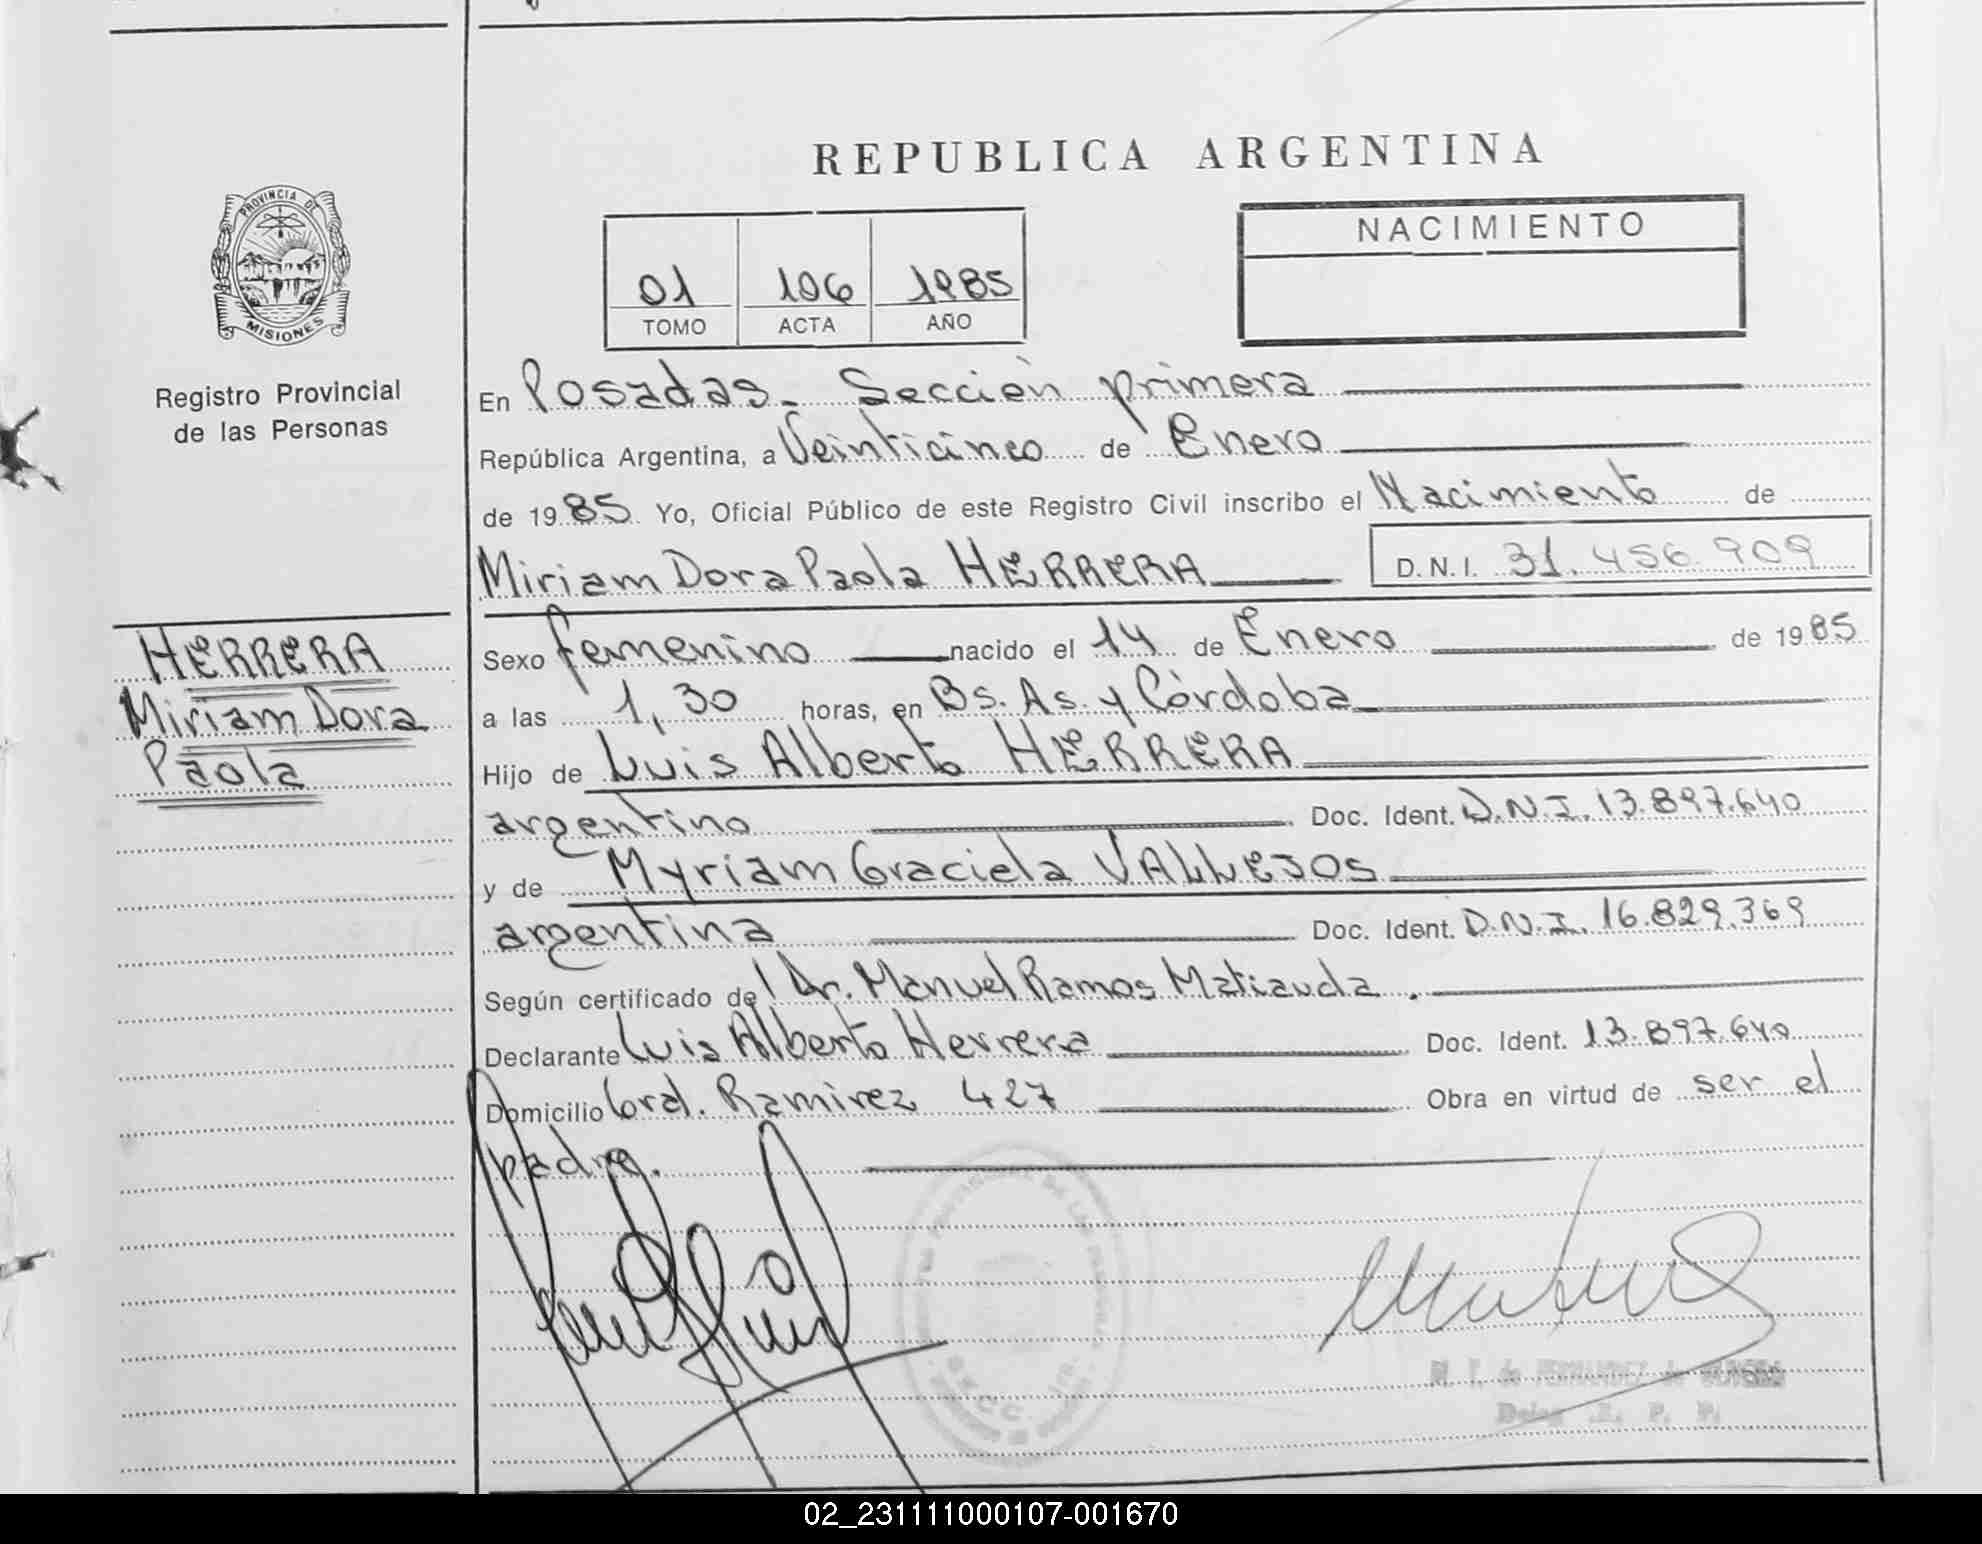 REPUBLICA ARGENTINA
PROVINCIA DE
MISIONES
Registro Provincial
de las Personas
01 106 1985
TOMO ACTA AÑO
NACIMIENTO
En Posadas. Sección primera
República Argentina, a Veinticinco de Enero
de 1985 Yo, Oficial Público de este Registro Civil inscribo el Nacimiento de
Miriam Dora Paola HERRERA D.N.I. 31.456.909
HERRERA
Miriam Dora
Paola
Sexo femenino nacido el 14 de Enero de 1985
a las 1,30 horas, en Bs. As. y Córdoba
Hijo de Luis Alberto HERRERA
argentino Doc. Ident. D.N.I. 13.897.640
y de Myriam Graciela VALLEJOS
argentina Doc. Ident. D.N.I. 16.829.369
Según certificado de Dr. Manuel Ramos Matiauda.
Declarante Luis Alberto Herrera Doc. Ident. 13.897.640
Domicilio Gral. Ramirez 427 Obra en virtud de ser el
padre.
DE LAS
M. T. de FERNANDEZ de
Deleg. R. P. P.
02_231111000107-001670